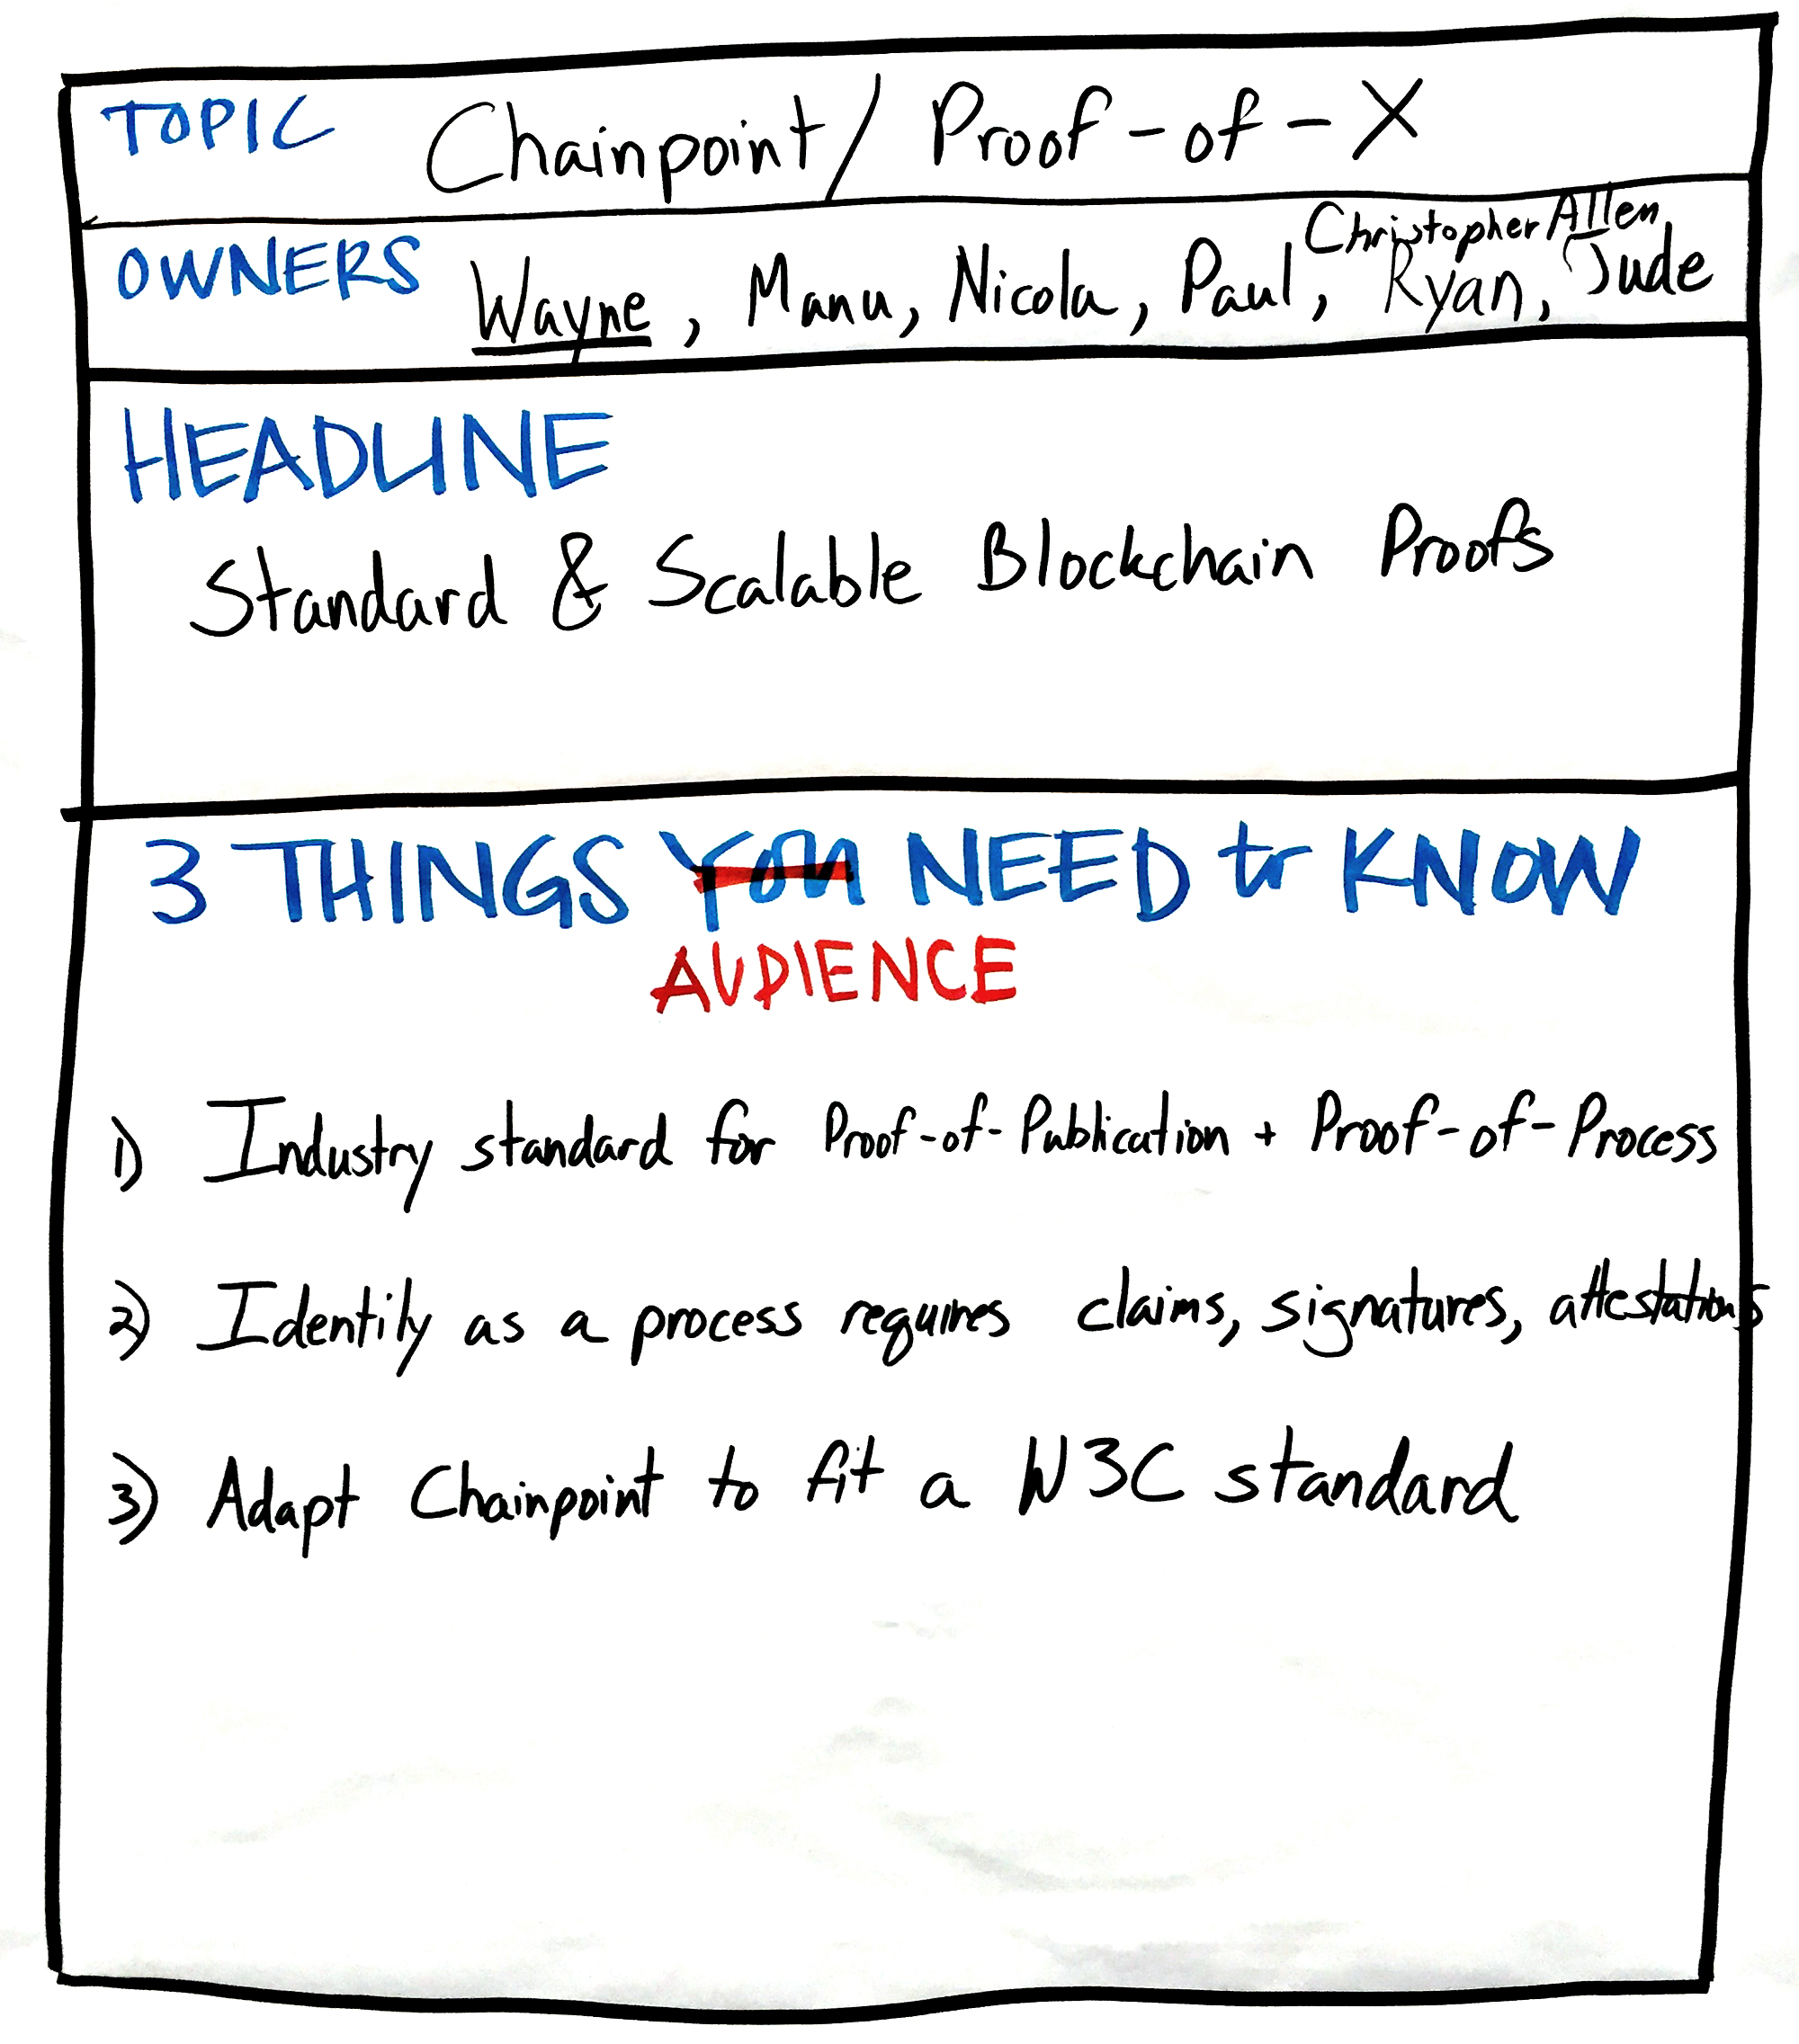 TOPIC Chainpoint/ Proof-of-X
OWNERS Wayne, Manu, Nicola, Paul, Christopher Allen, Ryan, Jude
HEADLINE
Standard & Scalable Blockchain Proofs
3 THINGS You NEED to KNOW
AUDIENCE
1) Industry standard for Proof-of-Publication + Proof-of-Process
2) Identity as a process requires claims, signatures, attestations
3) Adapt Chainpoint to fit a W3C standard